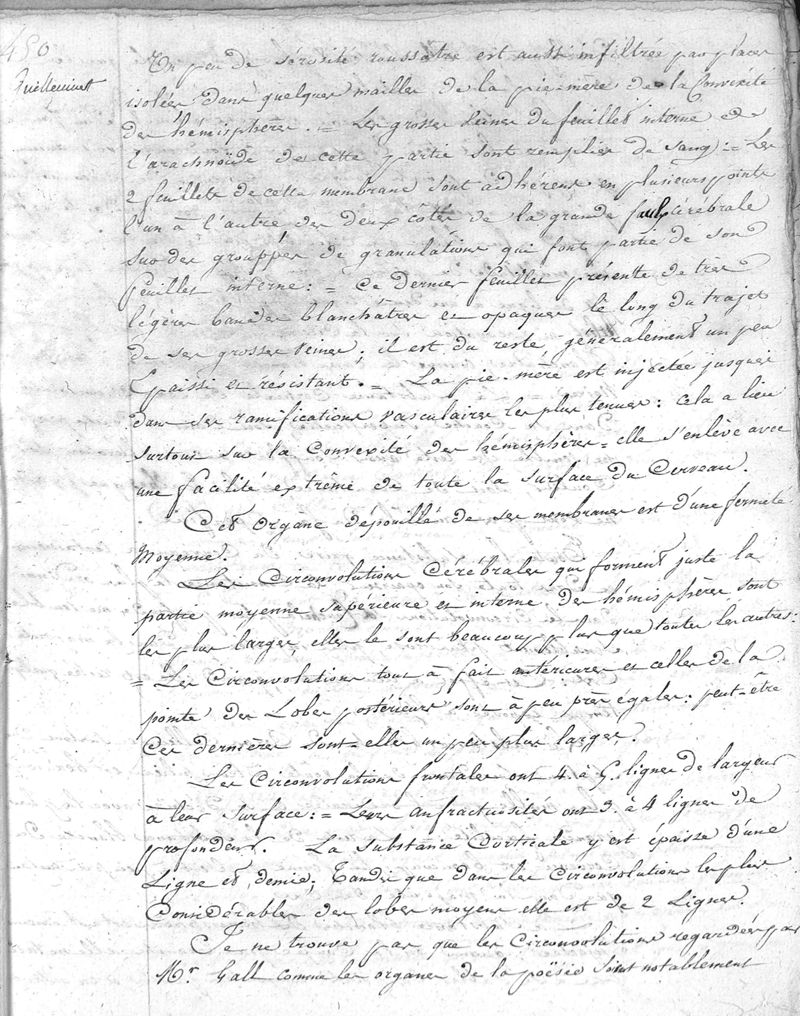 450
Un peu de sérosité roussâtre est aussi infiltrée par places
isolées dans quelques mailles de la pie-mère de la Convexité
des hémisphères. = Les grosses veines du feuillet interne de
l'arachnoïde de cette partie sont remplies de sang := Les
2 feuillets de cette membrane sont adhérens en plusieurs points
l'un à l'autre des deux côtés de la grande faulx cérébrale
sur des grouppes de granulations qui font partie de son
feuillet interne : = Ce dernier feuillet présente de très
légères bandes blanchâtres et opaques le long du trajet
de ses grosses veines; il est du reste généralement un peu
épaissi et résistant. = La pie-mère est injectée jusques
dans ses ramifications vasculaires les plus tenues : cela a lieu
surtout sur la Convexité des hémisphères = elle s'enlève avec
une facilité extrême de toute la surface du Cerveau.
Cet Organe dépouillé de ses membranes est d'une fermeté
Moyenne.
Les Circonvolutions Cérébrales qui forment juste la
partie moyenne supérieure et interne des hémisphères sont
les plus larges, elles le sont beaucoup plus que toutes les autres :
= Les Circonvolutions tout à fait antérieures et celles de la
pointe des Lobes postérieurs sont à peu près égales : peut-être
Ces dernières sont-elles un peu plus larges.
Les Circonvolutions frontales ont 4. à 5. lignes de largeur
à leur surface : = Leurs anfractuosités ont 3. à 4 lignes de
profondeur. La substance Corticale y est épaisse d'une
Ligne et demie; Tandis que dans les Circonvolutions les plus
Considérables des lobes moyens elle est de 2 Lignes.
Je ne trouve pas que les Circonvolutions regardées par
Mr. Gall comme les organes de la poësie soient notablement